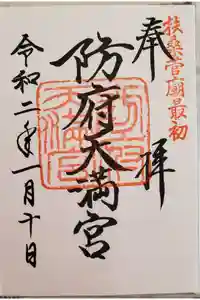 扶桑宮廟最初
奉拝
防府天満宮
令和二年一月十日